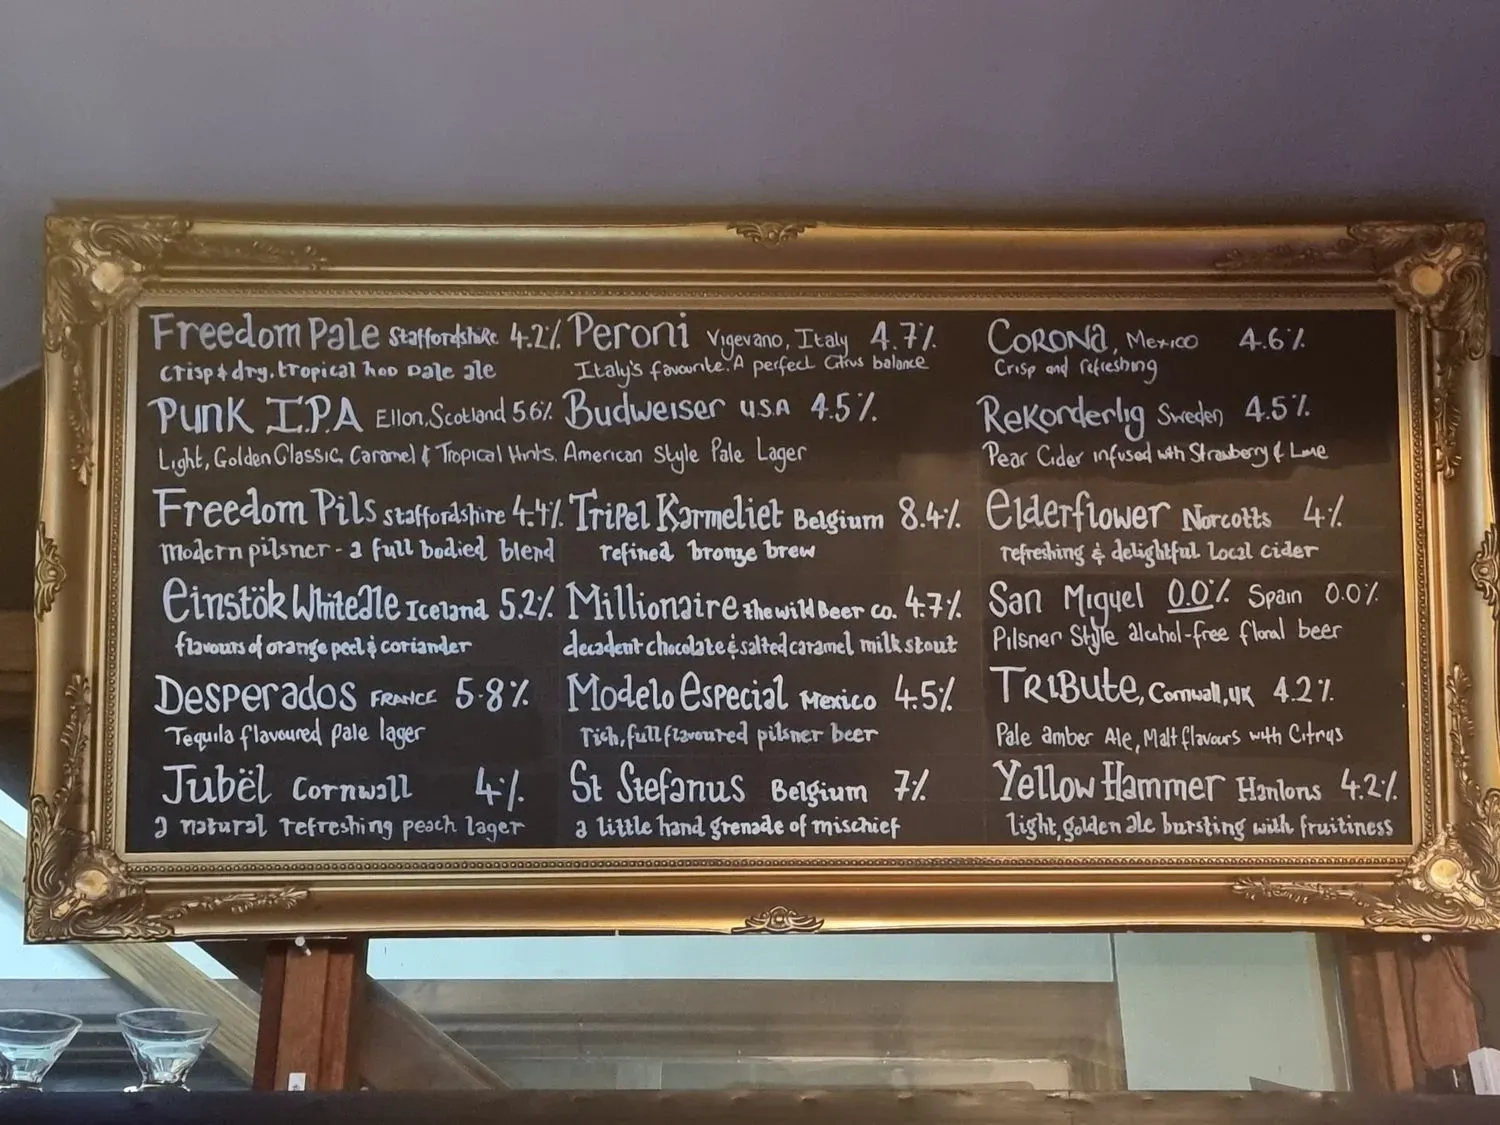 Freedom Pale Staffordshire 4.2%
Crisp & dry, tropical hop pale ale
Punk I.P.A Ellon, Scotland 5.6%
Light, Golden Classic, Caramel & Tropical Hints.
Freedom Pils Staffordshire 4.4%
Modern pilsner - a full bodied blend
Einstök White Ale Iceland 5.2%
flavours of orange peel & coriander
Desperados FRANCE 5.8%
Tequila flavoured pale lager
Jubël Cornwall 4%
a natural refreshing peach lager
Peroni Vigevano, Italy 4.7%
Italy's favourite. A perfect Citrus balance
Budweiser U.S.A 4.5%
American Style Pale Lager
Tripel Karmeliet Belgium 8.4%
refined bronze brew
Millionaire the wild Beer co. 4.7%
decadent chocolate & salted caramel milk stout
Modelo Especial Mexico 4.5%
rich, full flavoured pilsner beer
St Stefanus Belgium 7%
a little hand grenade of mischief
Corona, Mexico 4.6%
Crisp and refreshing
Rekorderlig Sweden 4.5%
Pear Cider infused with Strawberry & Lime
Elderflower Norcotts 4%
refreshing & delightful local cider
San Miguel 0.0% Spain 0.0%
Pilsner Style alcohol-free floral beer
TRIBUTE, Cornwall, UK 4.2%
Pale amber Ale, Malt flavours with Citrus
Yellow Hammer Hanlons 4.2%
light, golden ale bursting with fruitiness